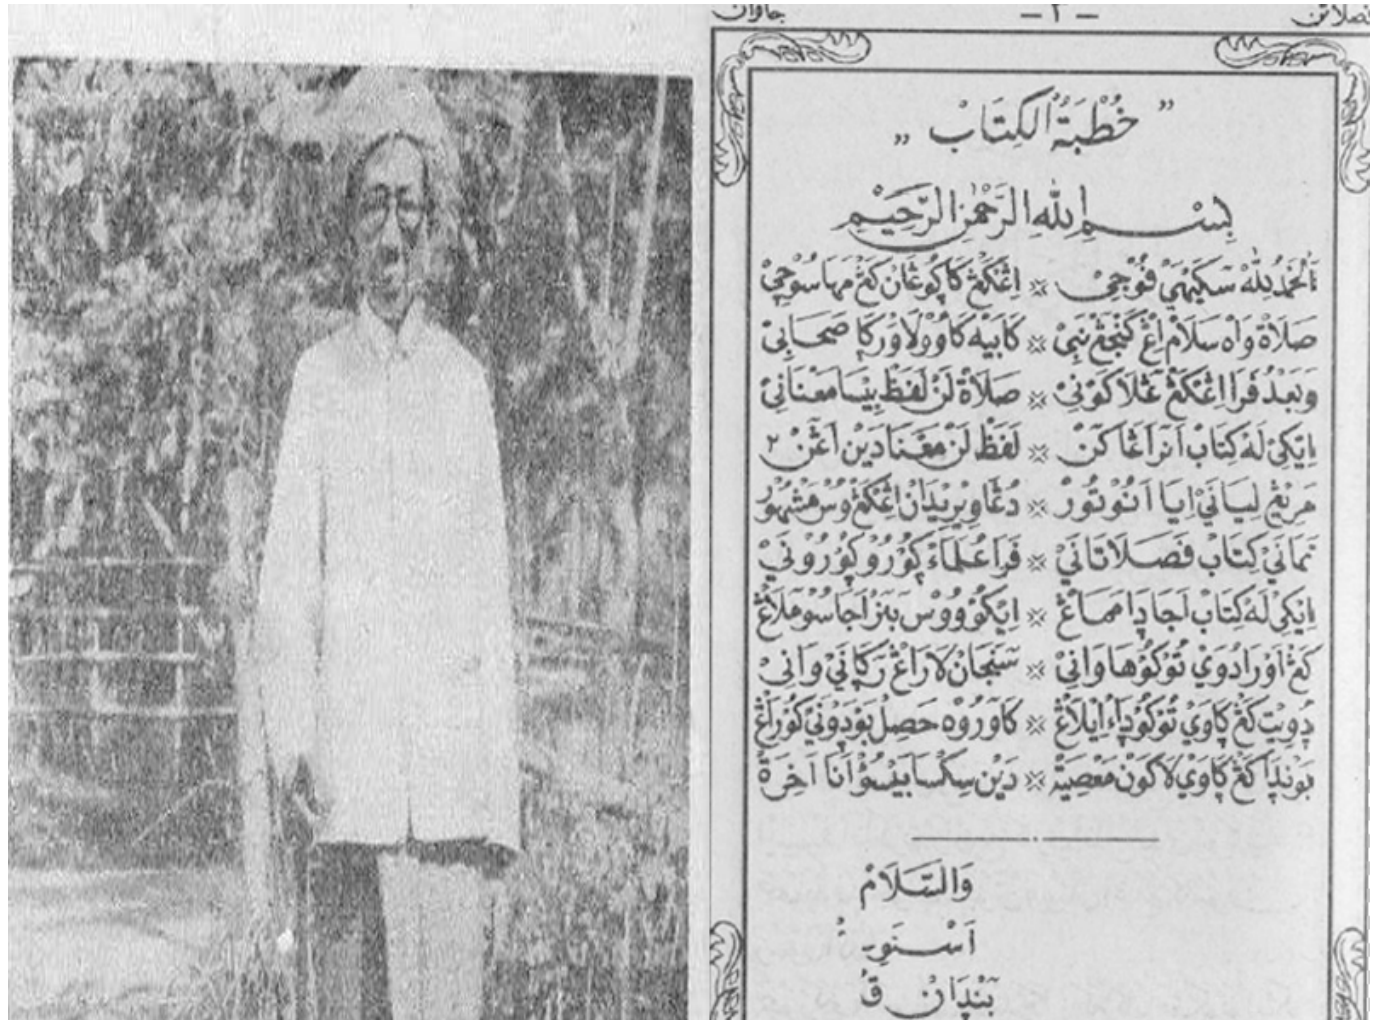 فصلاتن — ٢ — جاوان
” خُطْبَةُ الْكِتَابْ „
بِسْـــمِ اللهِ الرَّحْمٰنِ الرَّحِيْمِ
اَلْحَمْدُ لِلّٰهْ سَكَيْهَيْ فُوْجِيْ ※ اِڠْكَڠْ كَاڮُوڠَانْ كَڠْ مَهَا سُوْچِيْ
صَلَاةْ وَاهْ سَلَامْ اِڠْ كَنْجَڠْ نَبِيْ ※ كَابَيْهْ كَاوُوْلَاوَرْڮَا صَحَابَىْ
وَبَعْدُ فَرَا اِڠْكَڠْ عَڠْلَاكَوْنِيْ ※ صَلَاةْ لَنْ لَفَظْ بِيْسَا مَعْنَانَيْ
اِيْكِيْ لَهْ كِتَابْ اَنَرَاڠَاكَنْ ※ لَفَظْ لَنْ مَعْنَا دَيْنْ اَڠَنْ ٢
مَرِيڠْ لِيَانَيْ اِيَا اَنُوْتُوْرْ ※ دُڠَا وِيْرِيْدَانْ اِڠْكَڠْ وُسْ مَشْهُوْرْ
نَمَانَيْ كِتَابْ فَصَلَاتَانَيْ ※ فَرَا عُلَمَاءْ ڮُوْرُوْ ڮُوْرُوْنَيْ
اِيْكِيْ لَهْ كِتَابْ اَجَا ڊَا مَهَاڠْ ※ اِيْكُوْ وُوْسْ بَنَرْ اَجَا سُوْمَلَاڠْ
كَڠْ اَوْرَا دُوَيْ تُوْكُوْهَا وَانِيْ ※ سَنَجَانْ لَارَاڠْ رَڮَانَيْ وَانِيْ
دُوِيْتْ كَڠْ ڮَاوَيْ تُوْكُوْ ڊَاءْ اِيْلَاڠْ ※ كَاوَرُوْهْ حَصِلْ بَوْدَوْنَيْ كُوْرَاڠْ
بَوْنْڊَا كَڠْ ڮَاوَيْ لَاكَوْنْ مَعْصِيَةْ ※ دَيْنْ سِكْسَا بَيْسُوْءْ اَنَا اَخِرَةْ
وَالسَّلَامْ
اَسْنَوِيْ
بَنْڊَانْ قُ